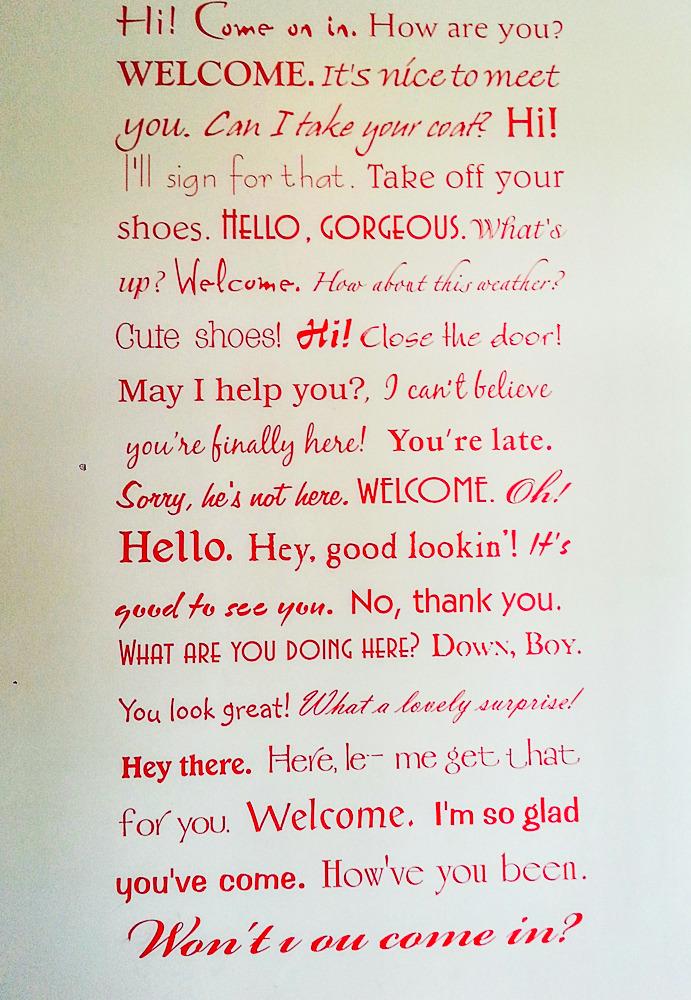 Hi! Come on in. How are you?
WELCOME. It's nice to meet
you. Can I take your coat? Hi!
I'll sign for that. Take off your
shoes. HELLO, GORGEOUS. What's
up? Welcome. How about this weather?
Cute shoes! Hi! Close the door!
May I help you?, I can't believe
you're finally here! You're late.
Sorry, he's not here. WELCOME. Oh!
Hello. Hey, good lookin'! It's
good to see you. No, thank you.
WHAT ARE YOU DOING HERE? DOWN, BOY.
You look great! What a lovely surprise!
Hey there. Here, le- me get that
for you. Welcome. I'm so glad
you've come. How've you been.
Won't you come in?